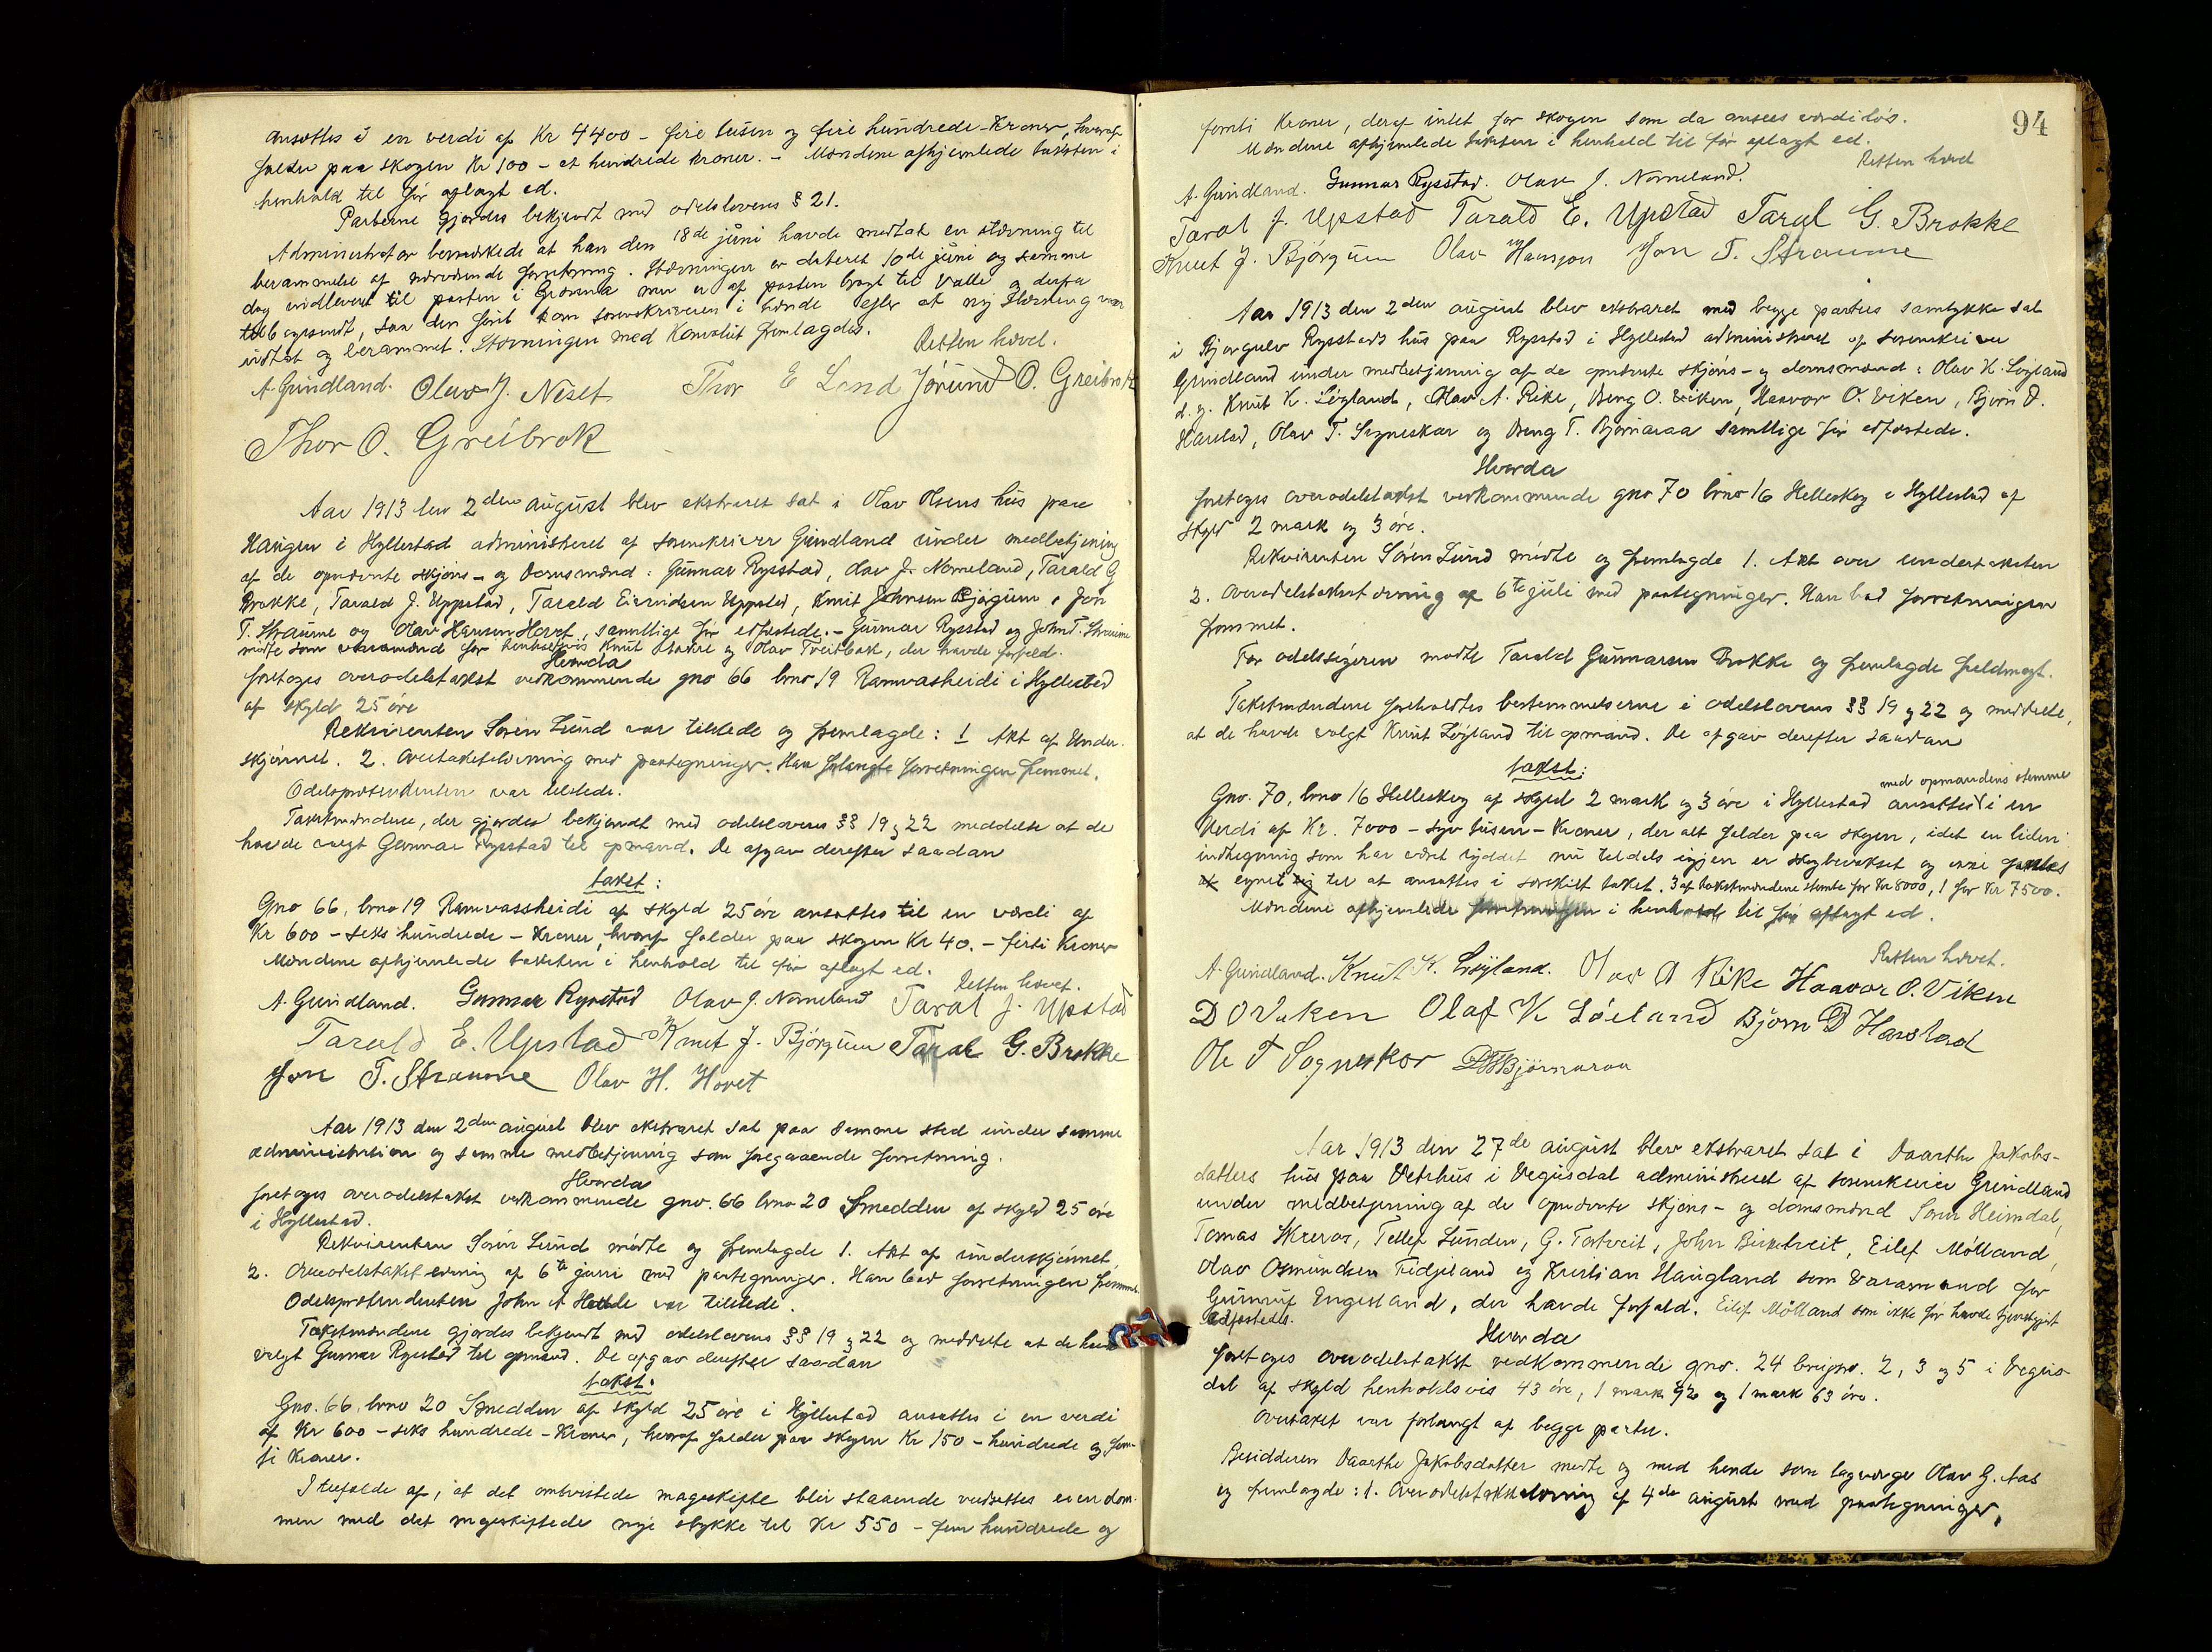 ansættes i en verdi af Kr 4400 - fire tusen og fire hundrede - Kroner, hvoraf
falder paa skogen Kr 100 - et hundrede kroner. - Mændene afhjemlede taksten i
henhold til før aflagt ed.
Parterne gjordes bekjendt med odelslovens § 21.
Administrator bemærkede at han den 18de juni havde mottat en stævning til
berammelse af nærværende forretning. Stævningen er dateret 10de juni og samme
dag indleveret til posten i men er af posten bragt til Valle og derfra
tilbagesendt, saa den først kom sorenskriveren i hænde efter at ny stævning var
utstæt og berammet. Stævningen med Konvolut fremlagdes.
Retten hævet.
A. Grindland. Olav J. Neset Thor E Lund Jørund O. Greibrok
Thor O. Greibrok
Aar 1913 den 2den august blev ekstraret sat i Olav Olsens hus paa
Haugen i Hyllestad administreret af sorenskriver Grindland under medbetjening
af de opnævnte skjøns- og domsmænd: Gunnar Rysstad, Olav J. Nomeland, Tarald G
Brokke, Tarald J. Uppstad, Tarald Eivindsen Uppstad, Knut Johnsen Bjøgum, Jon
T. Straume og Olav Hansen Hovet, samtlige før edfæstede. - Gunnar Rysstad og John T. Straume
møtte som varamænd for henholdsvis Knut og Olav Treitbak, der havde forfald.
Hvorda
foretoges overodelstakst vedkommende gno 66 brno 19 Ramvasheidi i Hyllestad
af skyld 25 øre
Rekvirenten Søren Lund var tilstede og fremlagde: 1 Akt af Under-
skjønnet. 2. Overtakststævning med paategninger. Han forlangte forretningen fremmet.
Odelsprætendenten var tilstede.
Takstmændene, der gjordes bekjendt med odelslovens §§ 19 og 22 meddelte at de
havde valgt Gunnar Rysstad til opmand. De afgav derefter saadan
takst:
Gno 66, brno 19 Ramvassheidi af skyld 25 øre ansættes til en værdi af
Kr 600 - seks hundrede - Kroner, hvoraf falder paa skogen Kr 40. - førti Kroner
Mændene afhjemlede taksten i henhold til før aflagt ed.
Retten hævet.
A. Grindland. Gunnar Rysstad Olav J. Nomeland Taral J. Upstad
Tarald E. Upstad Knut J. Bjørgum Taral G. Brokke
Jon T. Straume Olav H. Hovet
Aar 1913 den 2den august blev ekstraret sat paa samme sted under samme
administration og samme medbetjening som foregaaende forretning.
Hvorda
foretoges overodelstakst vedkommende gno. 66 brno 20 Smedden af skyld 25 øre
i Hyllestad.
Rekvirenten Søren Lund møtte og fremlagde 1. Akt af underskjønnet,
2. Overodelstakstævning af 6te juni med paategninger. Han bad forretningen fremmet.
Odelsprætendenten John A var tilstede.
Takstmændene gjordes bekjendt med odelslovens §§ 19 og 22 og meddelte at de havde
valgt Gunnar Rysstad til opmand. De afgav derefter saadan
takst.
Gno. 66, brno 20 Smedden af skyld 25 øre i Hyllestad ansættes i en verdi
af Kr 600 - seks hundrede - Kroner, hvoraf falder paa skogen Kr 150 - hundrede og fem-
ti Kroner.
I tilfælde af, at det omtvistede mageskifte blir staaende verdsættes eiendom-
men med det mageskiftede nye stykke til Kr 550 - fem hundrede og
94
femti Kroner, deraf intet for skogen som da ansees værdiløs.
Mændene afhjemlede taksten i henhold til før aflagt ed.
Retten hævd
A. Grindland. Gunnar Rysstad. Olav J. Nomeland.
Taral J. Upstad Tarald E. Upstad Taral G. Brokke
Knut J. Bjørgum Olav Hansson Jon T. Straume
Aar 1913 den 2den august blev ekstraret med begge parters samtykke sat
i Bjorgulv Rysstads hus paa Rysstad i Hyllestad administreret af sorenskriver
Grindland under medbetjening af de opnævnte skjøns- og domsmænd: Olav K. Løgland
d. y. Knut K. Løgland, Olav A. Rike, Dreng O. Viken, Haavor O. Viken, Bjørn D.
Harstad, Olav T. Sagneskar og Dreng T. Bjørnaraa samtlige før edfæstede.
Hvorda
foretoges overodelstakst vedkommende gno 70 brno 16 Helleskog i Hyllestad af
skyld 2 mark og 3 øre.
Rekvirenten Søren Lund møtte og fremlagde 1. Akt over undertaksten
2. Overodelstakstævning af 6te juli med paategninger. Han bad forretningen
fremmet.
For odelseieren møtte Tarald Gunnarsen Brokke og fremlagde fuldmagt.
Takstmændene foreholdtes bestemmelserne i odelslovens §§ 19 og 22 og meddelte,
at de havde valgt Knut Løyland til opmand. De afgav derefter saadan
takst:
med opmandens stemme
Gno. 70, brno 16 Helleskog af skyld 2 mark og 3 øre i Hyllestad ansættes i en
Verdi af Kr. 7000 - syv tusen - Kroner, der alt falder paa skogen, idet en liden
indhegning som har været ryddet nu tildels igjen er skogbevokset og ikke fandtes
egnet til at ansættes i særskilt takst. 3 af takstmændene stemte for Kr 8000, 1 for Kr 7500.
Mændene afhjemlede forretningen i henhold til før aflagt ed.
Retten hævet.
A. Grindland. Knut K. Løyland. Olav A Rike Haavor O. Viken
D O Viken Olaf K Løiland Bjørn D Harstad
Ole T Sogneskar DTBjörnaraa
Aar 1913 den 27de august blev ekstraret sat i Daarthe Jakobs-
datters hus paa Vetrhus i Vegusdal administreret af sorenskriver Grindland
under medbetjening af de opnævnte skjøns- og domsmænd Søren Heimdal,
Tomas Skreros, Tellef Lunden, G. Tortveit, John Birketveit, Eilef Mølland,
Olav Osmundsen Fidjeland og Kristian Haugland som varamænd for
Gunnuf Engesland, der havde forfald. Eilef Mølland som ikke før havde tjenestgjort
edfæstedes.
Hvorda
foretoges overodelstakst vedkommende gno. 24 bruksno. 2, 3 og 5 i Vegus-
dal af skyld henholdsvis 43 øre, 1 mark 92 og 1 mark 63 øre.
Overtakst var forlangt af begge parter.
Besidderen Daarthe Jakobsdatter møtte og med hende som lagverge Olav G. Aas
og fremlagde: 1. Overodelstakststævning af 4de august med paategninger,